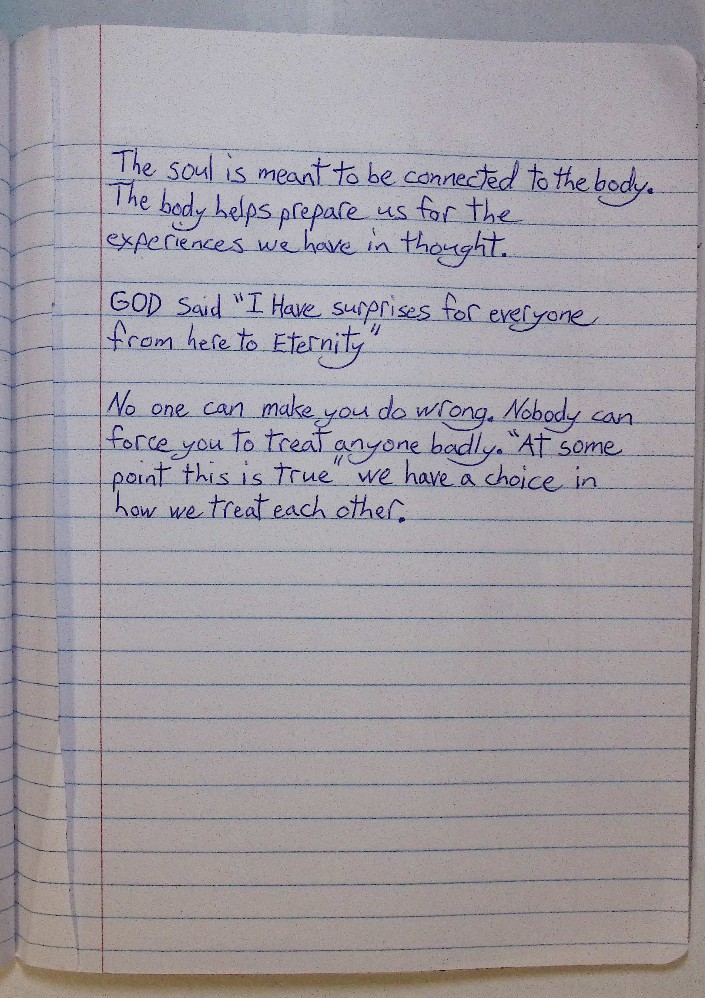 The soul is meant to be connected to the body.
The body helps prepare us for the
experiences we have in thought.
GOD said "I Have surprises for everyone
from here to Eternity"
No one can make you do wrong. Nobody can
force you to treat anyone badly. "At some
point this is true" we have a choice in
how we treat each other.